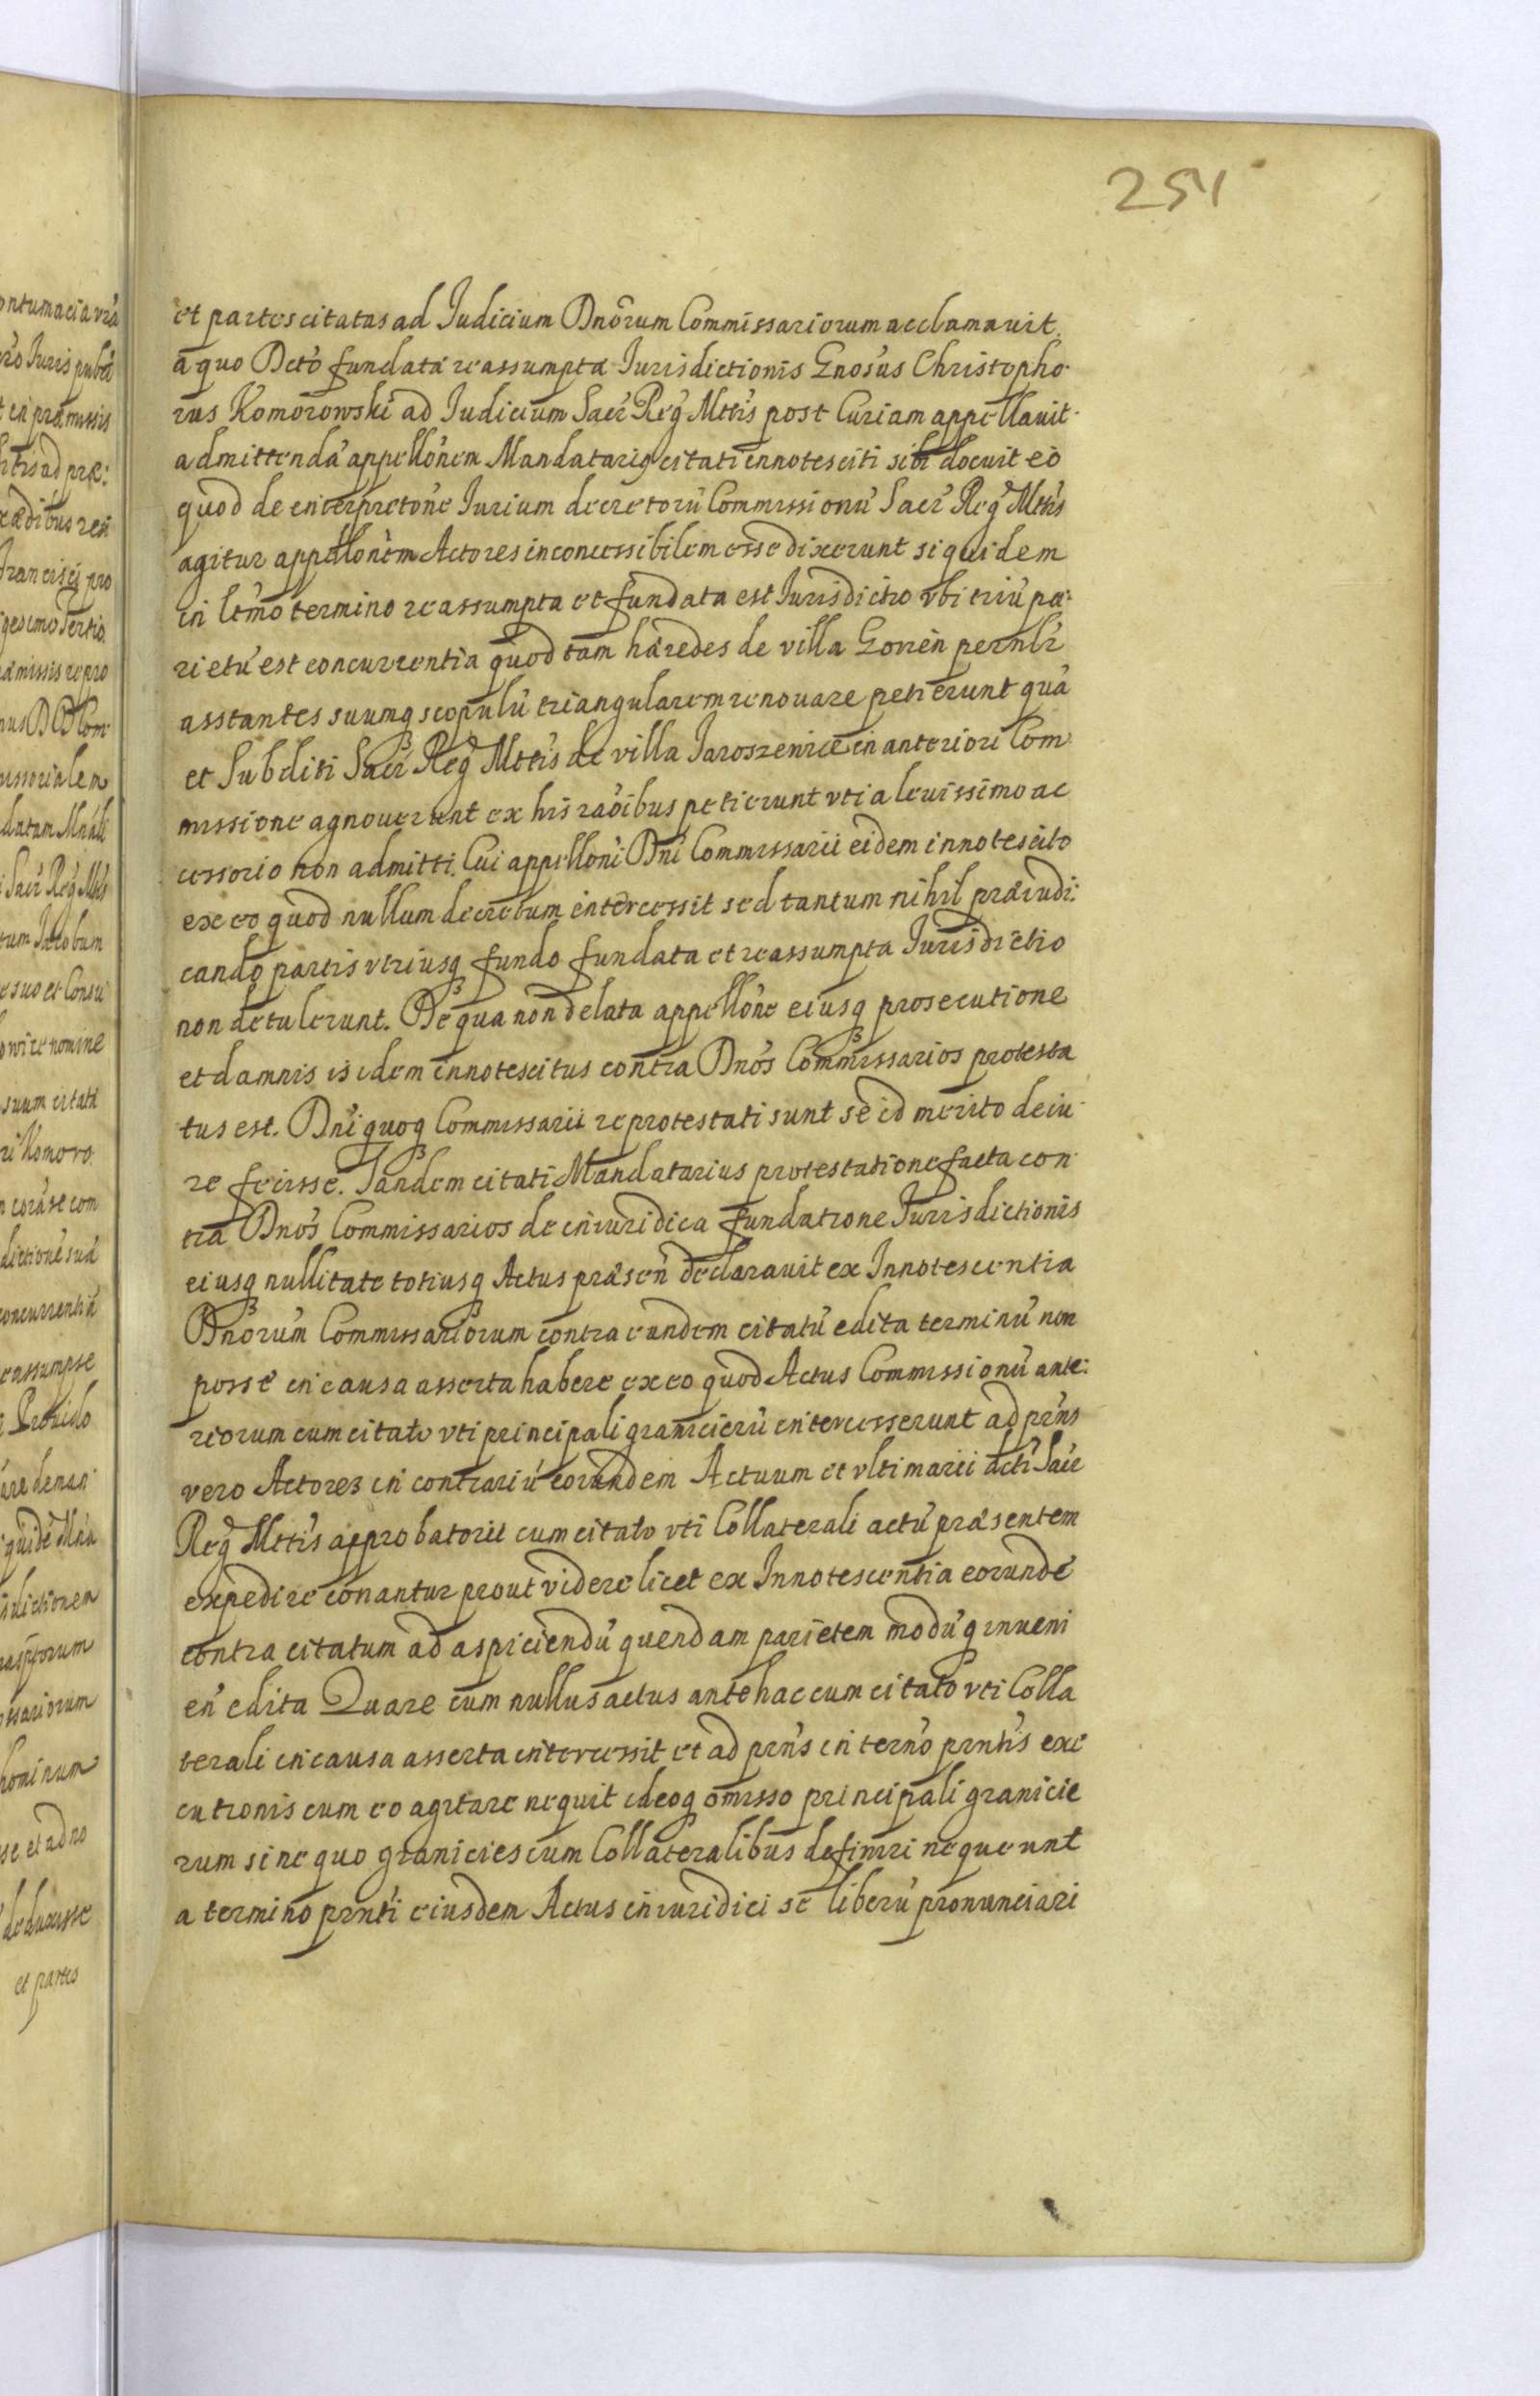 251
et partes citatas ad Judicium Dnōrum Commissariorum acclamauit.
a quo Dctō fundatæ reassumptæ Jurisdictionis Gnosus Christopho-
rus Komorowski ad Judicium Sacr Reg Mttis post Curiam appellauit.
admittendā appellōnem Mandatariꝰ citati innotesciti sibi docuit eò
quòd de interpretōne Jurium decretorū Commissionū Sacr Reg Mttis
agitur appellōnem Actores inconcessibilem esse dixerunt siquidem
in ltmo termino reassumpta et fundata est Jurisdictio vbi triū pa-
rietū est concurrentia quòd tam hæredes de villa Gorzen pernlr
asstantes suumqꝫ scopulū triangularem renouare petierunt quā
et Subditi Sacr Reg Mttis de villa Jaroszenice in anteriori Com
missione agnouerunt ex his raōibus petierunt vti a leuissimo ac
cessorio non admitti. Cui appellōni Dni Commissarii eidem innotescito
ex eo quòd nullum decretum intercessit sed tantum nihil præiudi-
cando partis vtriusqꝫ fundo fundata et reassumpta Jurisdictio
non detulerunt. De qua non delata appellōne eiusqꝫ prosecutione
et damnis isidem innotescitus contra Dnos Commissarios protesta
tus est. Dni quoqꝫ Commissarii reprotestati sunt se id merito de iu-
re fecisse. Tandem citati Mandatarius protestatione facta con-
tra Dnos Commissarios de iniuridica fundatione Jurisdictionis
eiusqꝫ nullitate totiusqꝫ Actus præsen declarauit ex Innotescentia
Dnorum Commissariorum contra eundem citatū edita terminū non
posse in causa asserta habere ex eo quòd Actus Commissionū ante-
riorum cum citato vti principali granicierū intercesserunt ad prns
vero Actores in contrariū eorundem Actuum et vltimarii acti Sacr
Reg Mttis approbatorii cum citato vti Collaterali actū præsentem
expedire conantur prout videre licet ex Innotescentia eorundē
contra citatum ad aspiciendū quendam parietem modū q inueni
en edita Quare cum nullus actus antehac cum citato vti Colla
terali in causa asserta intercessit et ad prns in termo prntis exe
cutionis cum eo agitare nequit ideoqꝫ omisso principali granicie
rum sine quo granicies cum Collateralibus definiri nequeunt
a termino prnti eiusdem Actus iniuridici se liberū pronunciari